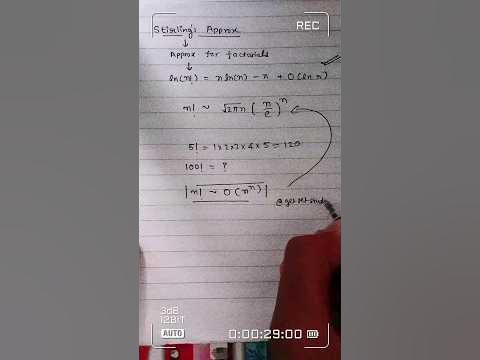 REC
Stirling's Approx
↓
Approx for factorials
↓
ln(n!) = n ln(n) - n + O(ln n)
n! ~ √2πn (n/e)^n
5! = 1x2x3x4x5 = 120
100! = ?
|n! ~ O(n^n)|
3dB
12BIT
AUTO
0:00:29:00